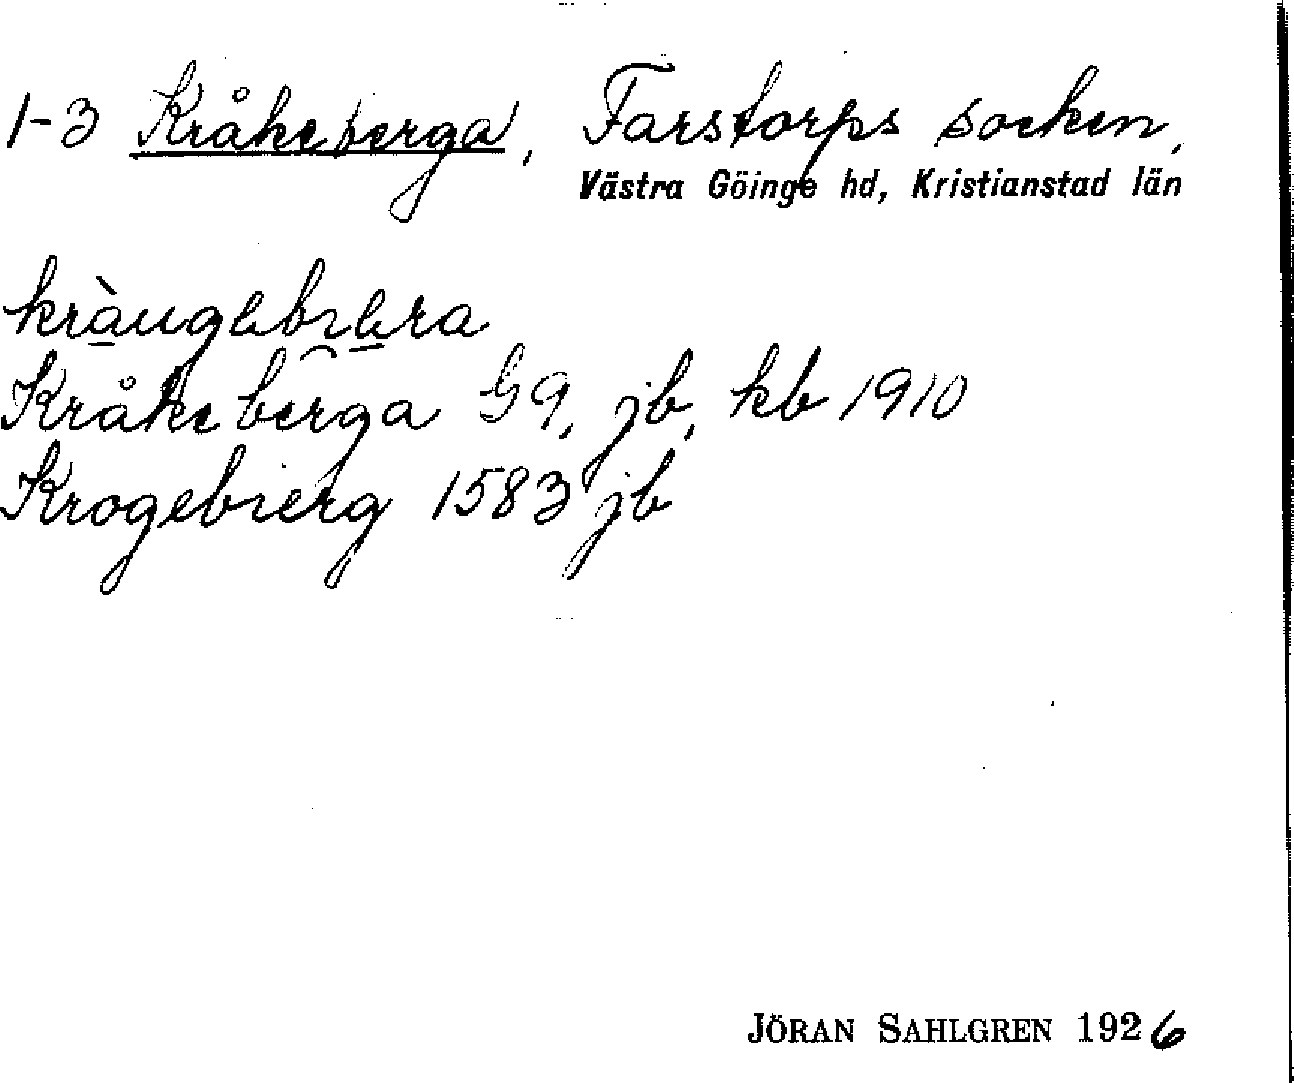 1-3 Kråkeberga, Farstorps socken,
Västra Göinge hd, Kristianstad län
Kråkeberga G9, jb, kb 1910
Krogebierg 1583 jb
JÖRAN SAHLGREN 1926